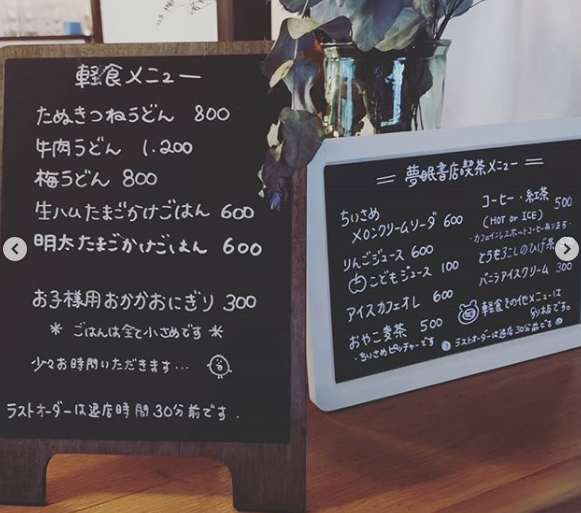 軽食メニュー
たぬきつねうどん 800
牛肉うどん 1.200
梅うどん 800
生ハムたまごかけごはん 600
明太たまごかけごはん 600
お子様用おかかおにぎり 300
* ごはんは全て小さめです *
少々お時間いただきます…
ラストオーダーは退店時間30分前です.
= 夢眠書店喫茶メニュー =
ちいさめ
メロンクリームソーダ 600
りんごジュース 600
こどもジュース 100
アイスカフェオレ 600
おやこ麦茶 500
・ちいさめピッチャーです
コーヒー・紅茶 500
(HOT or ICE)
・カフェインレスホットコーヒー有ります・
とうもろこしのひげ茶
バニラアイスクリーム 300
軽食その他メニューは
別板です。
ラストオーダーは退店30分前です